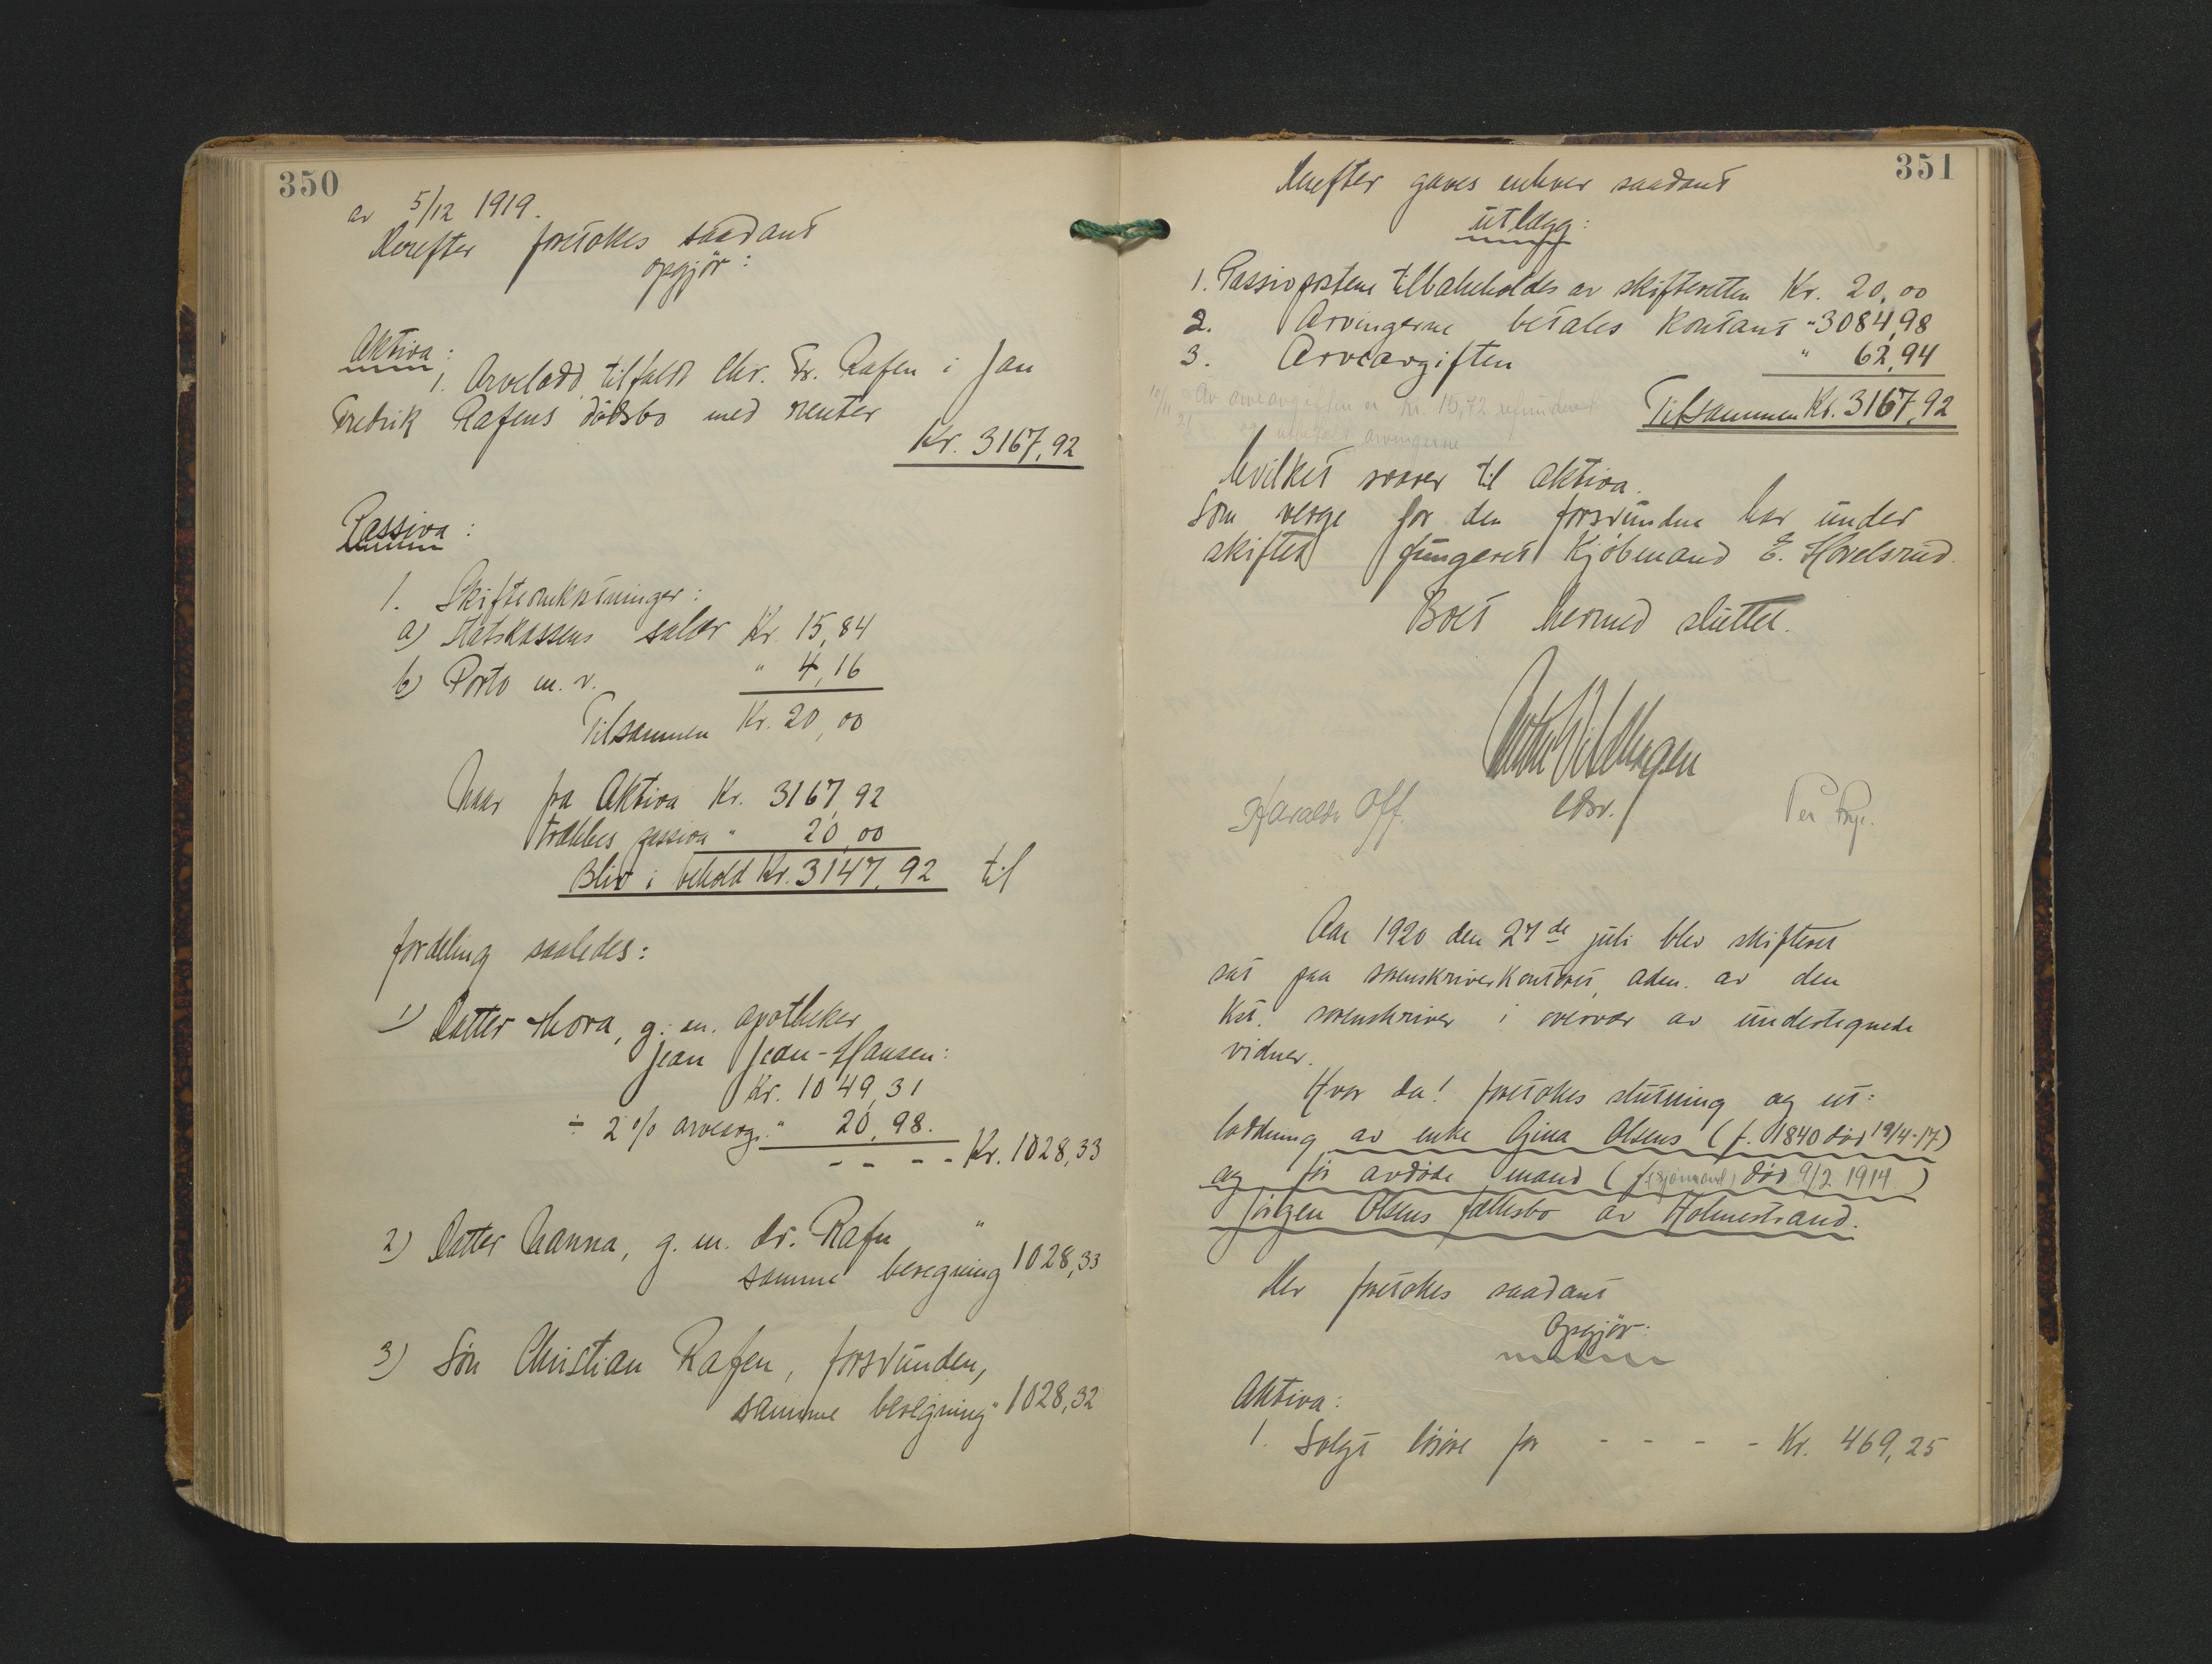 350
av 5/12 1919.
Derefter foretokes saadant
opgjör:
Aktiva:
1. Arvelodd tilfaldt Chr. Fr. Rafen i Jan
Fredrik Rafens dödsbo med renter
Kr. 3167,92
Passiva:
1. Skifteomkostninger:
a) Statskassens salær Kr. 15,84
b) Porto m. v. " 4,16
Tilsammen Kr. 20,00
Naar fra Aktiva Kr. 3167,92
trækkes passiva " 20,00
Blir i behold Kr. 3147,92 til
fordeling saaledes:
1) Datter Thora, g. m. apotheker
Jean Jean-Hansen:
Kr. 1049,31
÷ 2 % arveavg. " 20,98.
- - - - Kr. 1028,33
2) Datter Nanna, g. m. dr. Rafn "
samme beregning 1028,33
3) Sön Christian Rafen, forsvunden,
samme beregning " 1028,32
351
Derefter gaves enhver saadant
utlægg:
1. Passivpostene tilbakeholdes av skifteretten Kr. 20,00
2. Arvingerne betales kontant " 3084,98
3. Arveavgiften " 62,94
Tilsammen Kr. 3167,92
10/11 Av arveavgiften er kr. 15,72 refunderet
21 og utbetalt arvingerne
hvilket svarer til aktiva.
Som verge for den forsvundne har under
skiftet fungeret Kjöbmand E. Hovelsrud.
Boet hermed sluttet.
Harald Off.
Aar 1920 den 27de juli blev skifteret
sat paa sorenskriverkontoret, adm. av den
kst. sorenskriver i overvær av undertegnede
vidner.
Hvor da! foretokes slutning og ut=
lodning av enke Gina Olsens (f. 1840 död 19/4-17)
og för avdöde mand (f. (sjömand) död 9/2 1914)
Jörgen Olsens fællesbo av Holmestrand.
Der foretokes saadant
Opgjör:
Aktiva:
1. Solgt lösöre for - - - - Kr. 469,25